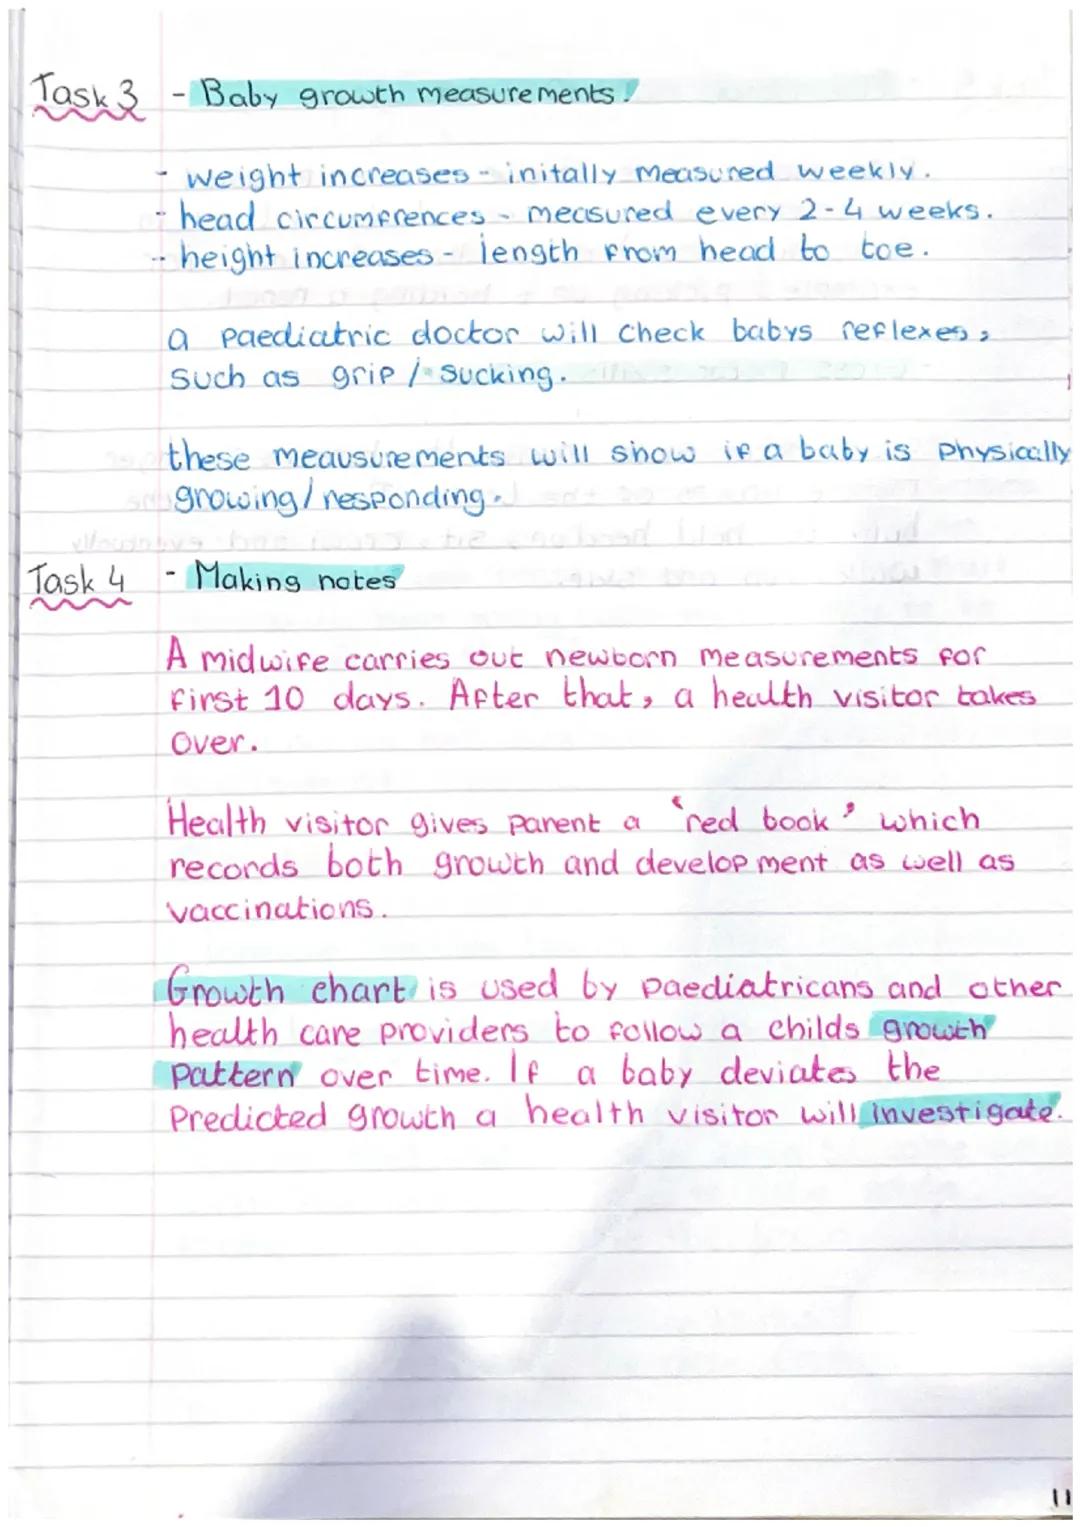 Task 3 - Baby growth measurements!
- weight increases - initally measured weekly.
- head circumfrences - measured every 2-4 weeks.
- height increases - length from head to toe.
a paediatric doctor will check babys reflexes,
such as grip / sucking.
these meausurements will show if a baby is physically
growing / responding.
Task 4 - Making notes
A midwife carries out newborn measurements for
first 10 days. After that, a health visitor takes
over.
Health visitor gives parent a 'red book' which
records both growth and development as well as
vaccinations.
Growth chart is used by paediatricans and other
health care providers to follow a childs growth
pattern over time. If a baby deviates the
predicted growth a health visitor will investigate.
11